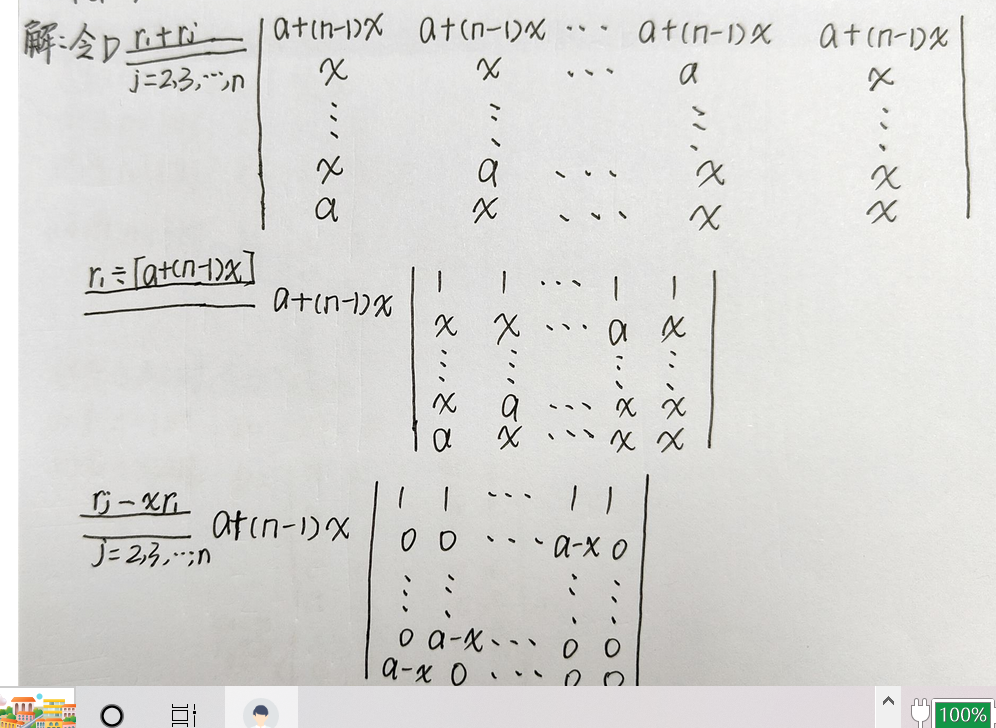 解:令D r₁+rⱼ
j=2,3,…,n
a+(n-1)x a+(n-1)x … a+(n-1)x a+(n-1)x
x x … a x
⋮ ⋮ ⋮ ⋮
x a … x x
a x … x x
r₁÷[a+(n-1)x] a+(n-1)x
1 1 … 1 1
x x … a x
⋮ ⋮ ⋮ ⋮
x a … x x
a x … x x
rⱼ-xr₁
j=2,3,…,n
a+(n-1)x
1 1 … 1 1
0 0 … a-x 0
⋮ ⋮ ⋮ ⋮
0 a-x … 0 0
a-x 0 … 0 0
100%